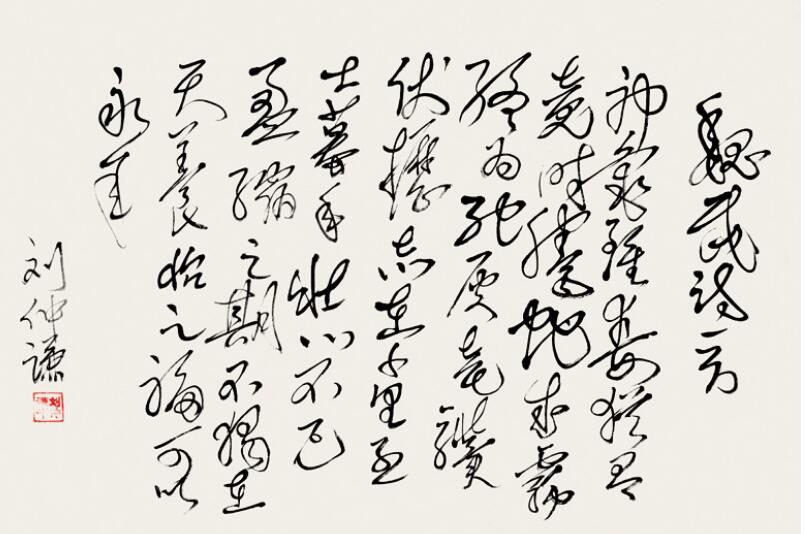 魏武詩一首
神龜雖壽猶有
竟時騰蛇成霧
終为灰老驥
伏櫪志在千里烈
士暮年壯心不已
盈縮之期不獨在
天養怡之福可以
永年
刘仲谦